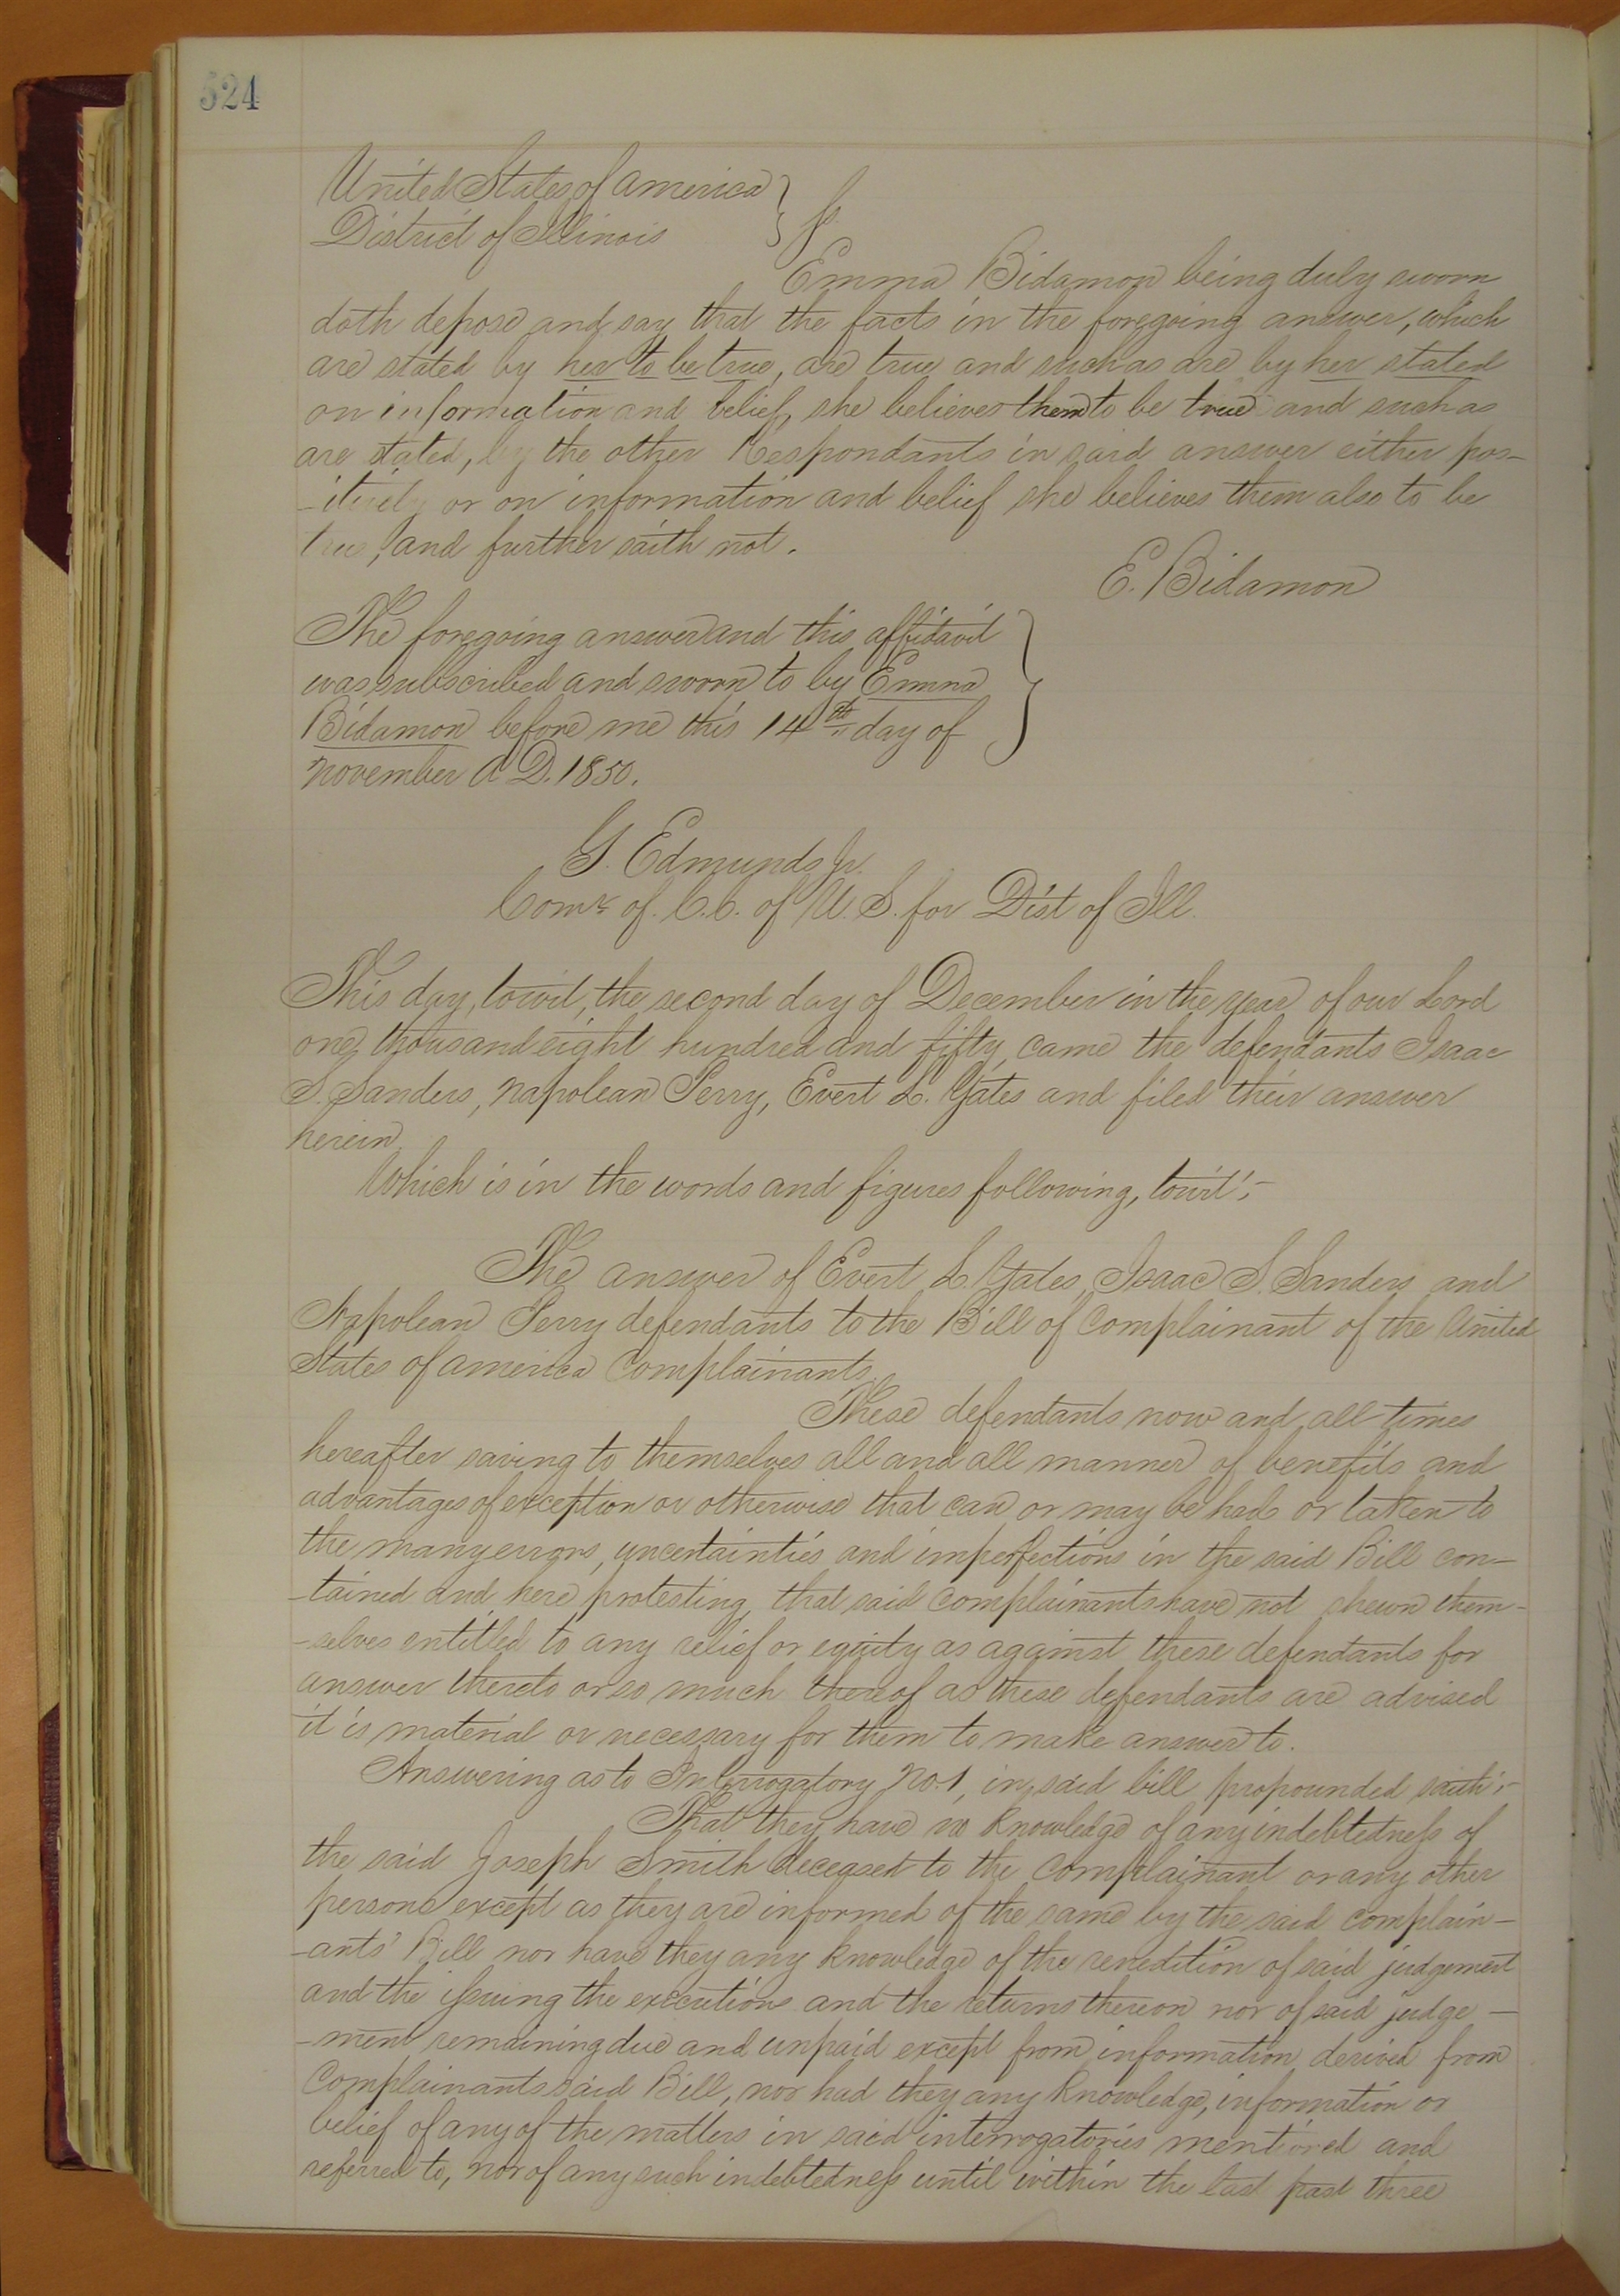 524
United States of America }
District of Illinois } ss
Emma Bidamon being duly sworn
doth depose and say that the facts in the foregoing answer, which
are stated by her to be true, are true and such as are by her stated
on information and belief, she believes them to be true and such as
are stated, by the other Respondants in said answer either pos-
-itively or on information and belief she believes them also to be
true, and further saith not.
E. Bidamon
The foregoing answer and this affidavit
was subscribed and sworn to by Emma
Bidamon before me this 14th day of
November A D. 1850.
G. Edmunds Jr.
Comr of. C.C. of U. S. for Dist of Ill.
This day, towit, the second day of December in the year of our Lord
one thousand eight hundred and fifty came the defendants Isaac
S. Sanders, Napolean Perry, Evert L. Yates and filed their answer
herein.
Which is in the words and figures following, towit:-
The answer of Evert L. Yates, Isaac S. Sanders and
Napolean Perry defendants to the Bill of Complainant of the United
States of America Complainants.
These defendants now and all times
hereafter saving to themselves all and all manner of benefits and
advantages of exception or otherwise that can or may be had or taken to
the many errors, uncertainties and imperfections in the said Bill con-
-tained and here protesting that said Complainants have not shewn them-
-selves entitled to any relief or equity as against these defendants for
answer thereto or so much thereof as these defendants are advised
it is material or necessary for them to make answer to.
Answering as to Interrogatory No. 1, in said bill propounded saith:-
That they have no knowledge of any indebtedness of
the said Joseph Smith deceased to the Complainant or any other
persons except as they are informed of the same by the said Complain-
-ants' Bill nor have they any knowledge of the renedition of said judgement
and the issuing the executions and the returns thereon nor of said judge-
-ment remaining due and unpaid except from information derived from
Complainants said Bill, nor had they any knowledge, information or
belief of any of the matters in said interrogatories mentioned and
referred to, nor of any such indebtedness until within the last past three